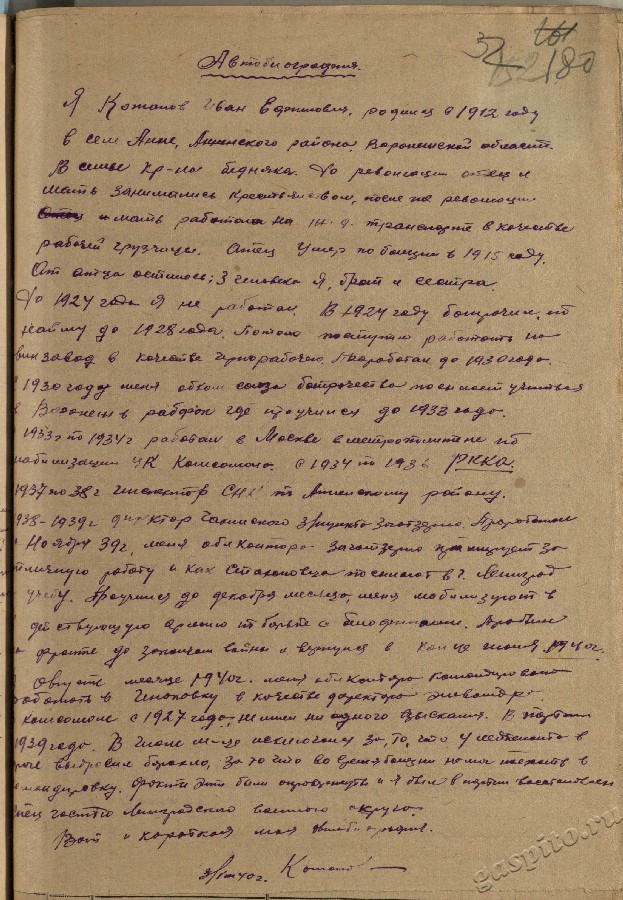 Автобиография.
180
Я Иван родился в 1912 году
в селе Анне, Аннинского района Воронежской области.
В семье кр-на бедняка. До революции отец и
мать занимались крестьянством, после же революции
мать работала на ж.д. транспорте в качестве
рабочей грузчицы. Отец умер по болезни в 1915 году.
От отца осталось: 3 человека я, брат и сестра.
До 1924 года я не работал. В 1924 году батрачил по
найму до 1928 года. Потом поступил работать на
винзавод в качестве чернорабочего. Проработал до 1930 года.
1930 году меня обком союза батрачества посылает учиться
Воронеж в рабфак где проучился до 1933 года.
1933 по 1934 г работал в Москве в метрополитене по
мобилизации ЦК Комсомола. С 1934 по 1936 РККА.
1937 по 38 г инспектор по Аннинскому району.
38-1939 г директор Заготзерно. Проработал
Ноября 39 г, меня обл контора Заготзерно премирует за
отличную работу и как Стахановца посылают в г. Ленинград
учебу. Проучился до декабря месяца, меня мобилизуют в
действующую армию по борьбе с белофинами. Пробыл
фронте до окончания войны и вернулся в конце июня 1940 г.
Августе месяце 1940 г. меня обл контора командировала
работать в в качестве директора элеватора.
Комсомоле с 1927 года, не имел ни одного взыскания. В партии
1939 года. В июле м-це исключали за то, что у
выбросил барахло, за то что во время болезни начал ехать в
командировку. Факты эти были опровергнуты и я был в партии восстановлен
частью Ленинградского военного округа.
Вот и короткая моя автобиография.
40 г.
gaspito.ru